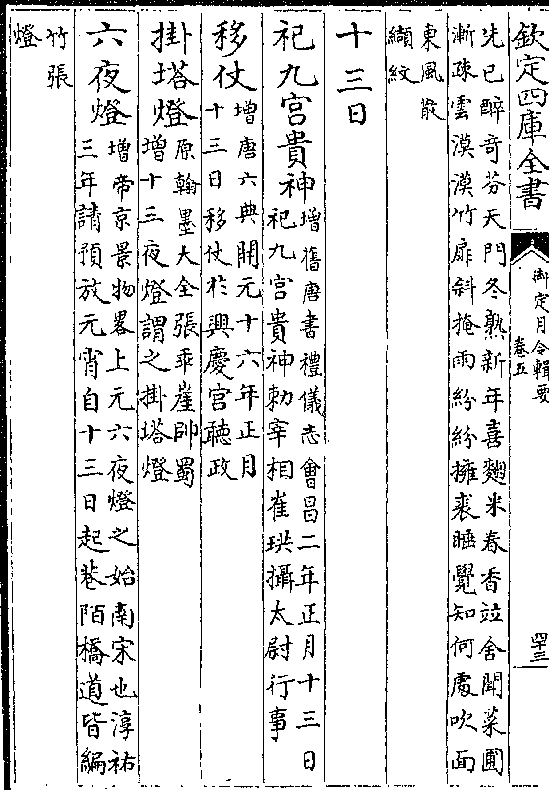 欽定四庫全書
御定月令輯要
卷五
四十三
先已醉奇芬天門冬熟新年喜麴米春香竝舍聞菜圃
漸疎雲漠漠竹扉斜掩雨紛紛擁裘睡覺知何處吹面
東風散
纈紋
十三日
祀九宫貴神
增舊唐書禮儀志會昌二年正月十三日
祀九宫貴神勅宰相崔珙攝太尉行事
移仗
增唐六典開元十六年正月
十三日移仗於興慶宫聽政
掛塔燈
原翰墨大全張乖崖帥蜀
增十三夜燈謂之掛塔燈
六夜燈
增帝京景物畧上元六夜燈之始南宋也淳祐
三年請預放元宵自十三日起巷陌橋道皆編
竹張
燈